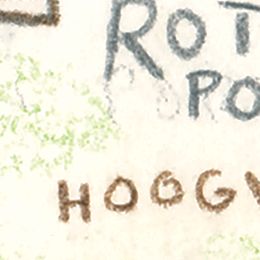 ROT
PO
HOOG